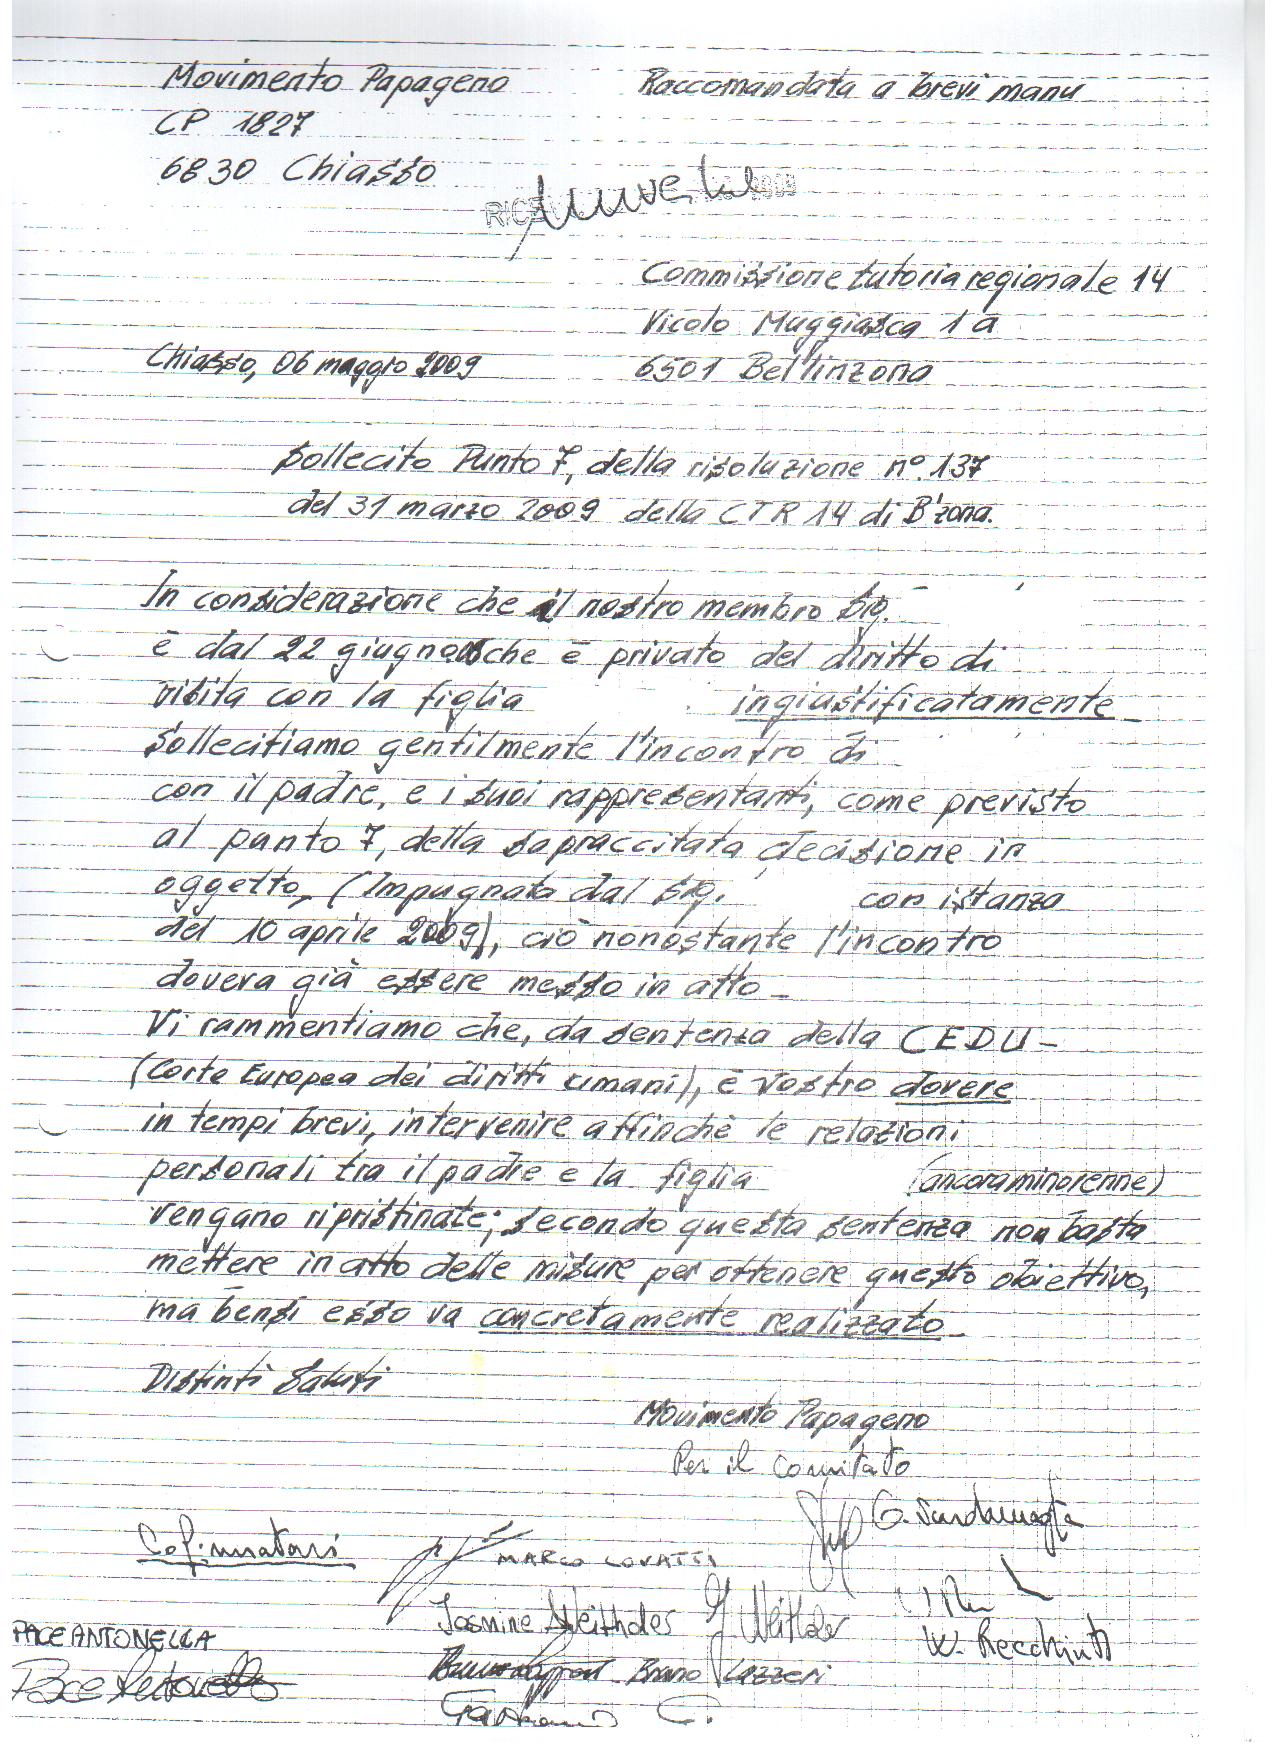 Movimento Papageno
Raccomandata a brevi manu
CP 1827
6830 Chiasso
Commissione tutoria regionale 14
Vicolo Muggiasca 1a
6501 Bellinzona
Chiasso, 06 maggio 2009
Sollecito Punto 7, della risoluzione n° 137
del 31 marzo 2009 della CTR 14 di B'zona.
In considerazione che il nostro membro Sig.
è dal 22 giugno che è privato del diritto di
visita con la figlia ingiustificatamente
Sollecitiamo gentilmente l'incontro di
con il padre, e i suoi rappresentanti, come previsto
al punto 7, della sopraccitata decisione in
oggetto, (Impugnata dal Sig. con istanza
del 10 aprile 2009), ciò nonostante l'incontro
doveva già essere messo in atto -
Vi rammentiamo che, da sentenza della CEDU -
(Corte Europea dei diritti umani), è Vostro dovere
in tempi brevi, intervenire affinchè le relazioni
personali tra il padre e la figlia (ancora minorenne)
vengano ripristinate; secondo questa sentenza non basta
mettere in atto delle misure per ottenere questo obiettivo,
ma bensì esso va concretamente realizzato
Distinti Saluti
Movimento Papageno
Per il comitato
Cofirmatari
MARCO LOVATTI
Jasmine Weithaler
W. Recchiuti
PACE ANTONELLA
Bruno Lazzeri
Pace Antonella